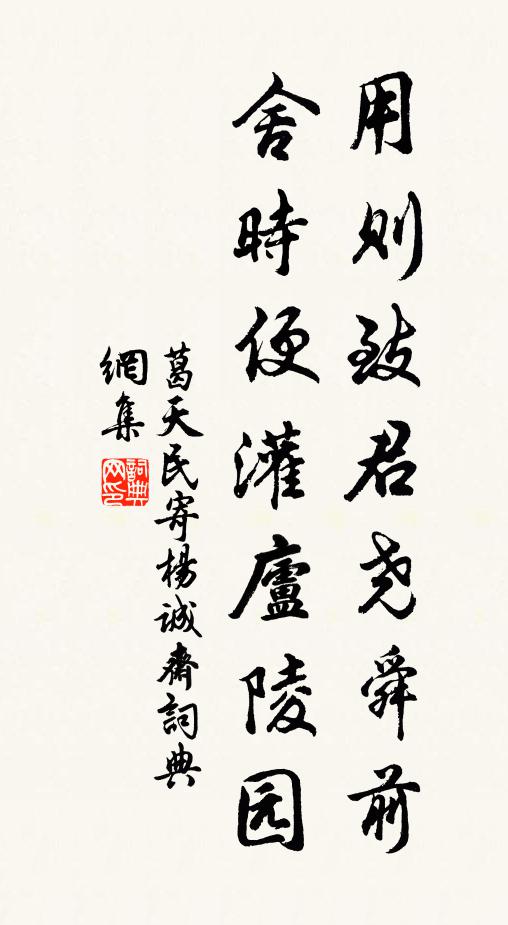 用则致君尧舜前
舍時便灌廬陵园
葛天民寄楊誠齋詞典
網集
詞典
网印